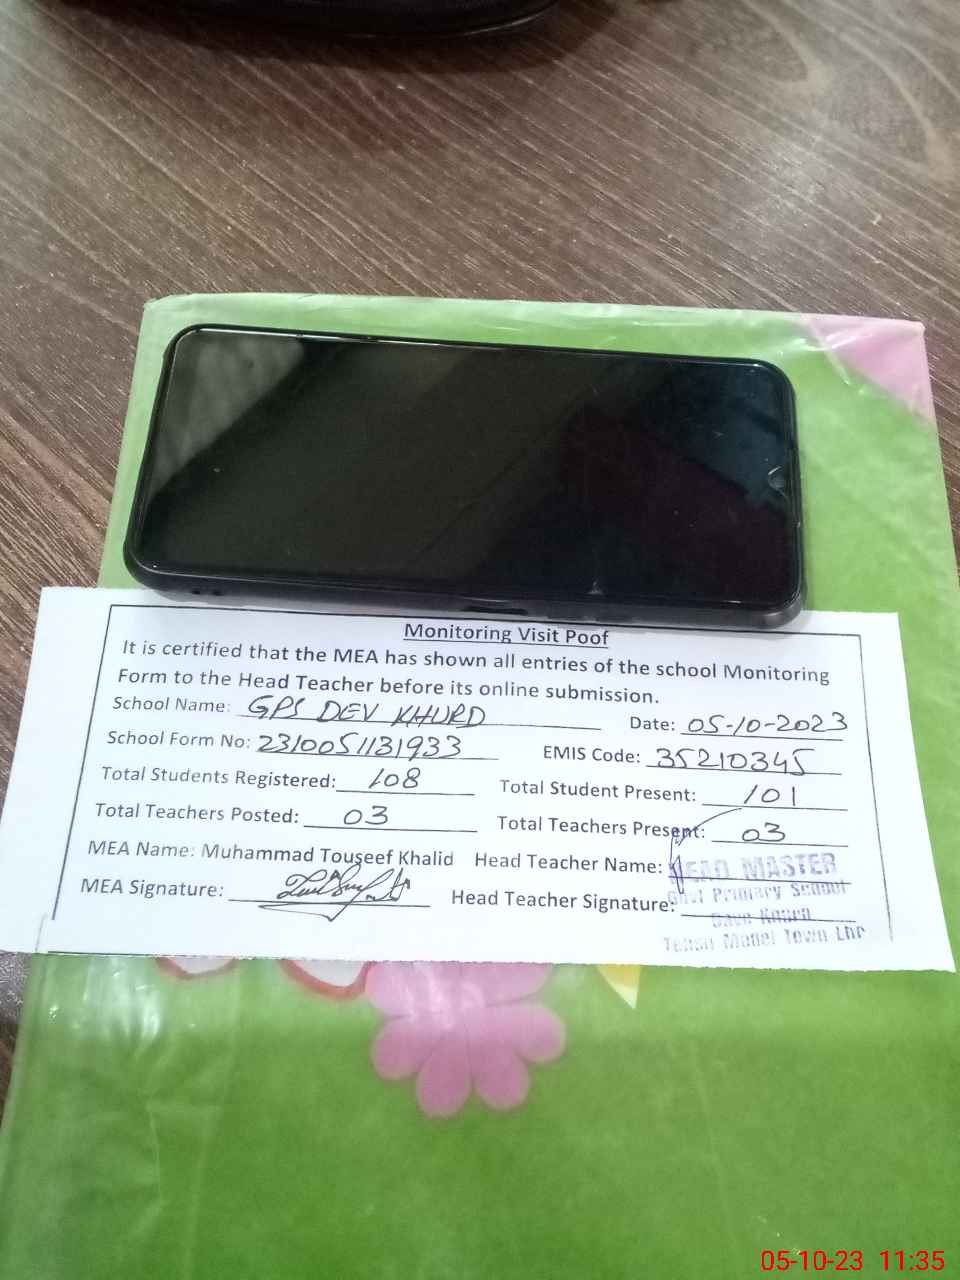 Monitoring Visit Poof
It is certified that the MEA has shown all entries of the school Monitoring
Form to the Head Teacher before its online submission.
School Name: GPS DEV KHURD Date: 05-10-2023
School Form No: 2310051131933 EMIS Code: 35210345
Total Students Registered: 108 Total Student Present: 101
Total Teachers Posted: 03 Total Teachers Present: 03
MEA Name: Muhammad Touseef Khalid Head Teacher Name:
MEA Signature: Head Teacher Signature:
HEAD MASTER
Govt Primary School
Tehsil Model Town LHR
05-10-23 11:35